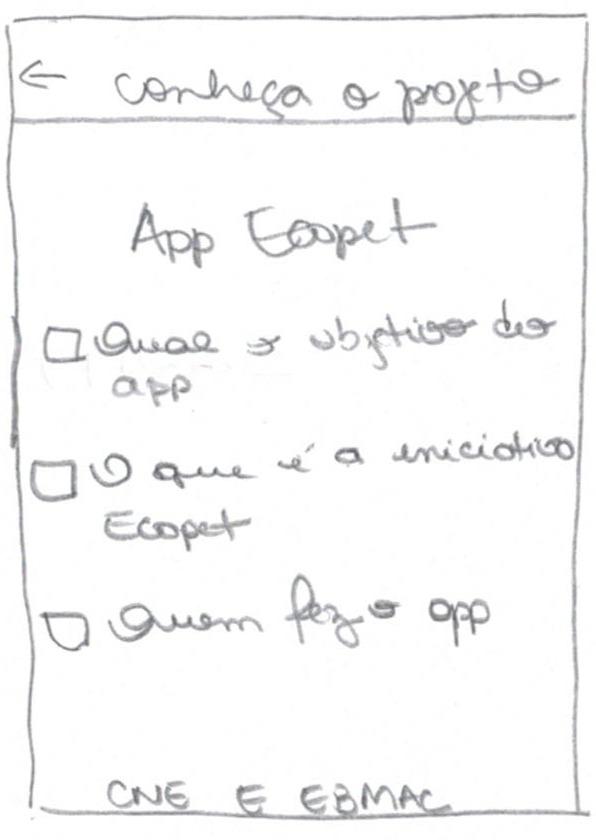 ← conheça o projeto
App Ecopet
Qual o objetivo do
app
O que é a iniciativa
Ecopet
Quem fez o app
CNE E EBMAC